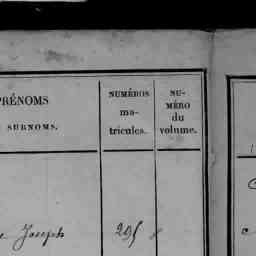 PRÉNOMS
SURNOMS.
NUMÉROS
ma-
tricules.
NU-
MÉRO
du
volume.
Joseph 295